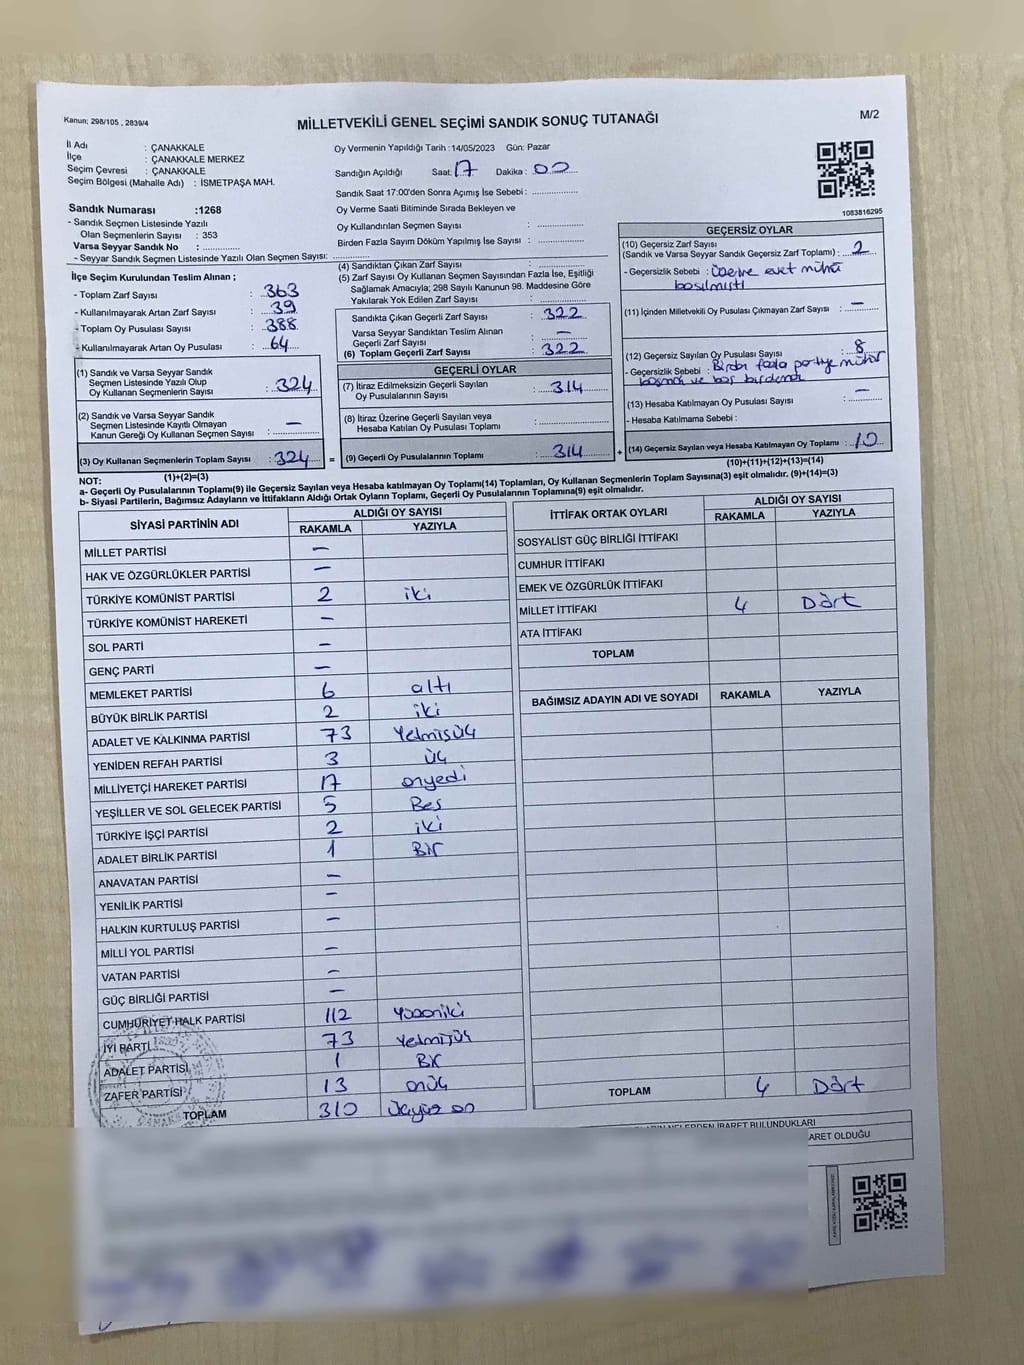 Kanun; 298/105 , 2839/4
MİLLETVEKİLİ GENEL SEÇİMİ SANDIK SONUÇ TUTANAĞI
M/2
İl Adı : ÇANAKKALE
İlçe : ÇANAKKALE MERKEZ
Seçim Çevresi : ÇANAKKALE
Seçim Bölgesi (Mahalle Adı) : İSMETPAŞA MAH.
Oy Vermenin Yapıldığı Tarih :14/05/2023 Gün: Pazar
Sandığın Açıldığı Saat: 17 Dakika : 00
Sandık Saat 17:00'den Sonra Açımış İse Sebebi : ...............
Oy Verme Saati Bitiminde Sırada Bekleyen ve
Oy Kullandırılan Seçmen Sayısı : ...............
Birden Fazla Sayım Döküm Yapılmış İse Sayısı : ...............
1083816295
Sandık Numarası :1268
- Sandık Seçmen Listesinde Yazılı
Olan Seçmenlerin Sayısı : 353
Varsa Seyyar Sandık No : ...............
- Seyyar Sandık Seçmen Listesinde Yazılı Olan Seçmen Sayısı: ...............
İlçe Seçim Kurulundan Teslim Alınan ;
- Toplam Zarf Sayısı : 363
- Kullanılmayarak Artan Zarf Sayısı : 39
- Toplam Oy Pusulası Sayısı : 388
- Kullanılmayarak Artan Oy Pusulası : 64
(1) Sandık ve Varsa Seyyar Sandık
Seçmen Listesinde Yazılı Olup
Oy Kullanan Seçmenlerin Sayısı : 324
(2) Sandık ve Varsa Seyyar Sandık
Seçmen Listesinde Kayıtlı Olmayan
Kanun Gereği Oy Kullanan Seçmen Sayısı : —
(3) Oy Kullanan Seçmenlerin Toplam Sayısı : 324 =
(1)+(2)=(3)
(4) Sandıktan Çıkan Zarf Sayısı : ...............
(5) Zarf Sayısı Oy Kullanan Seçmen Sayısından Fazla İse, Eşitliği
Sağlamak Amacıyla; 298 Sayılı Kanunun 98. Maddesine Göre
Yakılarak Yok Edilen Zarf Sayısı : ...............
Sandıkta Çıkan Geçerli Zarf Sayısı : 322
Varsa Seyyar Sandıktan Teslim Alınan
Geçerli Zarf Sayısı : —
(6) Toplam Geçerli Zarf Sayısı : 322
GEÇERLİ OYLAR
(7) İtiraz Edilmeksizin Geçerli Sayılan
Oy Pusulalarının Sayısı : 314
(8) İtiraz Üzerine Geçerli Sayılan veya
Hesaba Katılan Oy Pusulası Toplamı : ...............
(9) Geçerli Oy Pusulalarının Toplamı : 314 +
GEÇERSİZ OYLAR
(10) Geçersiz Zarf Sayısı
(Sandık ve Varsa Seyyar Sandık Geçersiz Zarf Toplamı) : 2
- Geçersizlik Sebebi : üzerine evet mührü
basılmıştı
(11) İçinden Milletvekili Oy Pusulası Çıkmayan Zarf Sayısı : —
(12) Geçersiz Sayılan Oy Pusulası Sayısı : 8
- Geçersizlik Sebebi : Birden fazla partiye mühür
ve boş
(13) Hesaba Katılmayan Oy Pusulası Sayısı : —
- Hesaba Katılmama Sebebi :
(14) Geçersiz Sayılan veya Hesaba Katılmayan Oy Toplamı : 10
(10)+(11)+(12)+(13)=(14)
NOT:
a- Geçerli Oy Pusulalarının Toplamı(9) ile Geçersiz Sayılan veya Hesaba katılmayan Oy Toplamı(14) Toplamları, Oy Kullanan Seçmenlerin Toplam Sayısına(3) eşit olmalıdır. (9)+(14)=(3)
b- Siyasi Partilerin, Bağımsız Adayların ve İttifakların Aldığı Ortak Oyların Toplamı, Geçerli Oy Pusulalarının Toplamına(9) eşit olmalıdır.
SİYASİ PARTİNİN ADI ALDIĞI OY SAYISI
RAKAMLA YAZIYLA
MİLLET PARTİSİ —
HAK VE ÖZGÜRLÜKLER PARTİSİ —
TÜRKİYE KOMÜNİST PARTİSİ 2 iki
TÜRKİYE KOMÜNİST HAREKETİ —
SOL PARTİ —
GENÇ PARTİ —
MEMLEKET PARTİSİ 6 altı
BÜYÜK BİRLİK PARTİSİ 2 iki
ADALET VE KALKINMA PARTİSİ 73 Yetmişüç
YENİDEN REFAH PARTİSİ 3 üç
MİLLİYETÇİ HAREKET PARTİSİ 17 onyedi
YEŞİLLER VE SOL GELECEK PARTİSİ 5 Beş
TÜRKİYE İŞÇİ PARTİSİ 2 iki
ADALET BİRLİK PARTİSİ 1 Bir
ANAVATAN PARTİSİ —
YENİLİK PARTİSİ —
HALKIN KURTULUŞ PARTİSİ —
MİLLİ YOL PARTİSİ —
VATAN PARTİSİ —
GÜÇ BİRLİĞİ PARTİSİ —
CUMHURİYET HALK PARTİSİ 112 Yüzoniki
İYİ PARTİ 73 Yetmişüç
ADALET PARTİSİ 1 Bir
ZAFER PARTİSİ 13 onüç
TOPLAM 310 üçyüz on
İTTİFAK ORTAK OYLARI ALDIĞI OY SAYISI
RAKAMLA YAZIYLA
SOSYALİST GÜÇ BİRLİĞİ İTTİFAKI
CUMHUR İTTİFAKI
EMEK VE ÖZGÜRLÜK İTTİFAKI
MİLLET İTTİFAKI 4 Dört
ATA İTTİFAKI
TOPLAM
BAĞIMSIZ ADAYIN ADI VE SOYADI RAKAMLA YAZIYLA
TOPLAM 4 Dört
NELERDEN İBARET BULUNDUKLARI
ARET OLDUĞU